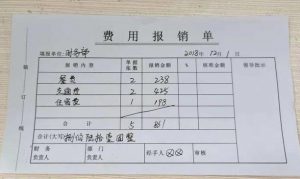 费用报销单
填报单位：财务部 2018年12月1日
报销内容 单据张数 报销金额 % 核准金额 领导批示
餐费 2 238
交通费 2 425
住宿费 1 198
合计 5 861
合计(大写)捌佰陆拾壹圆整
财务负责人 部门负责人 经手人 审核
装订线